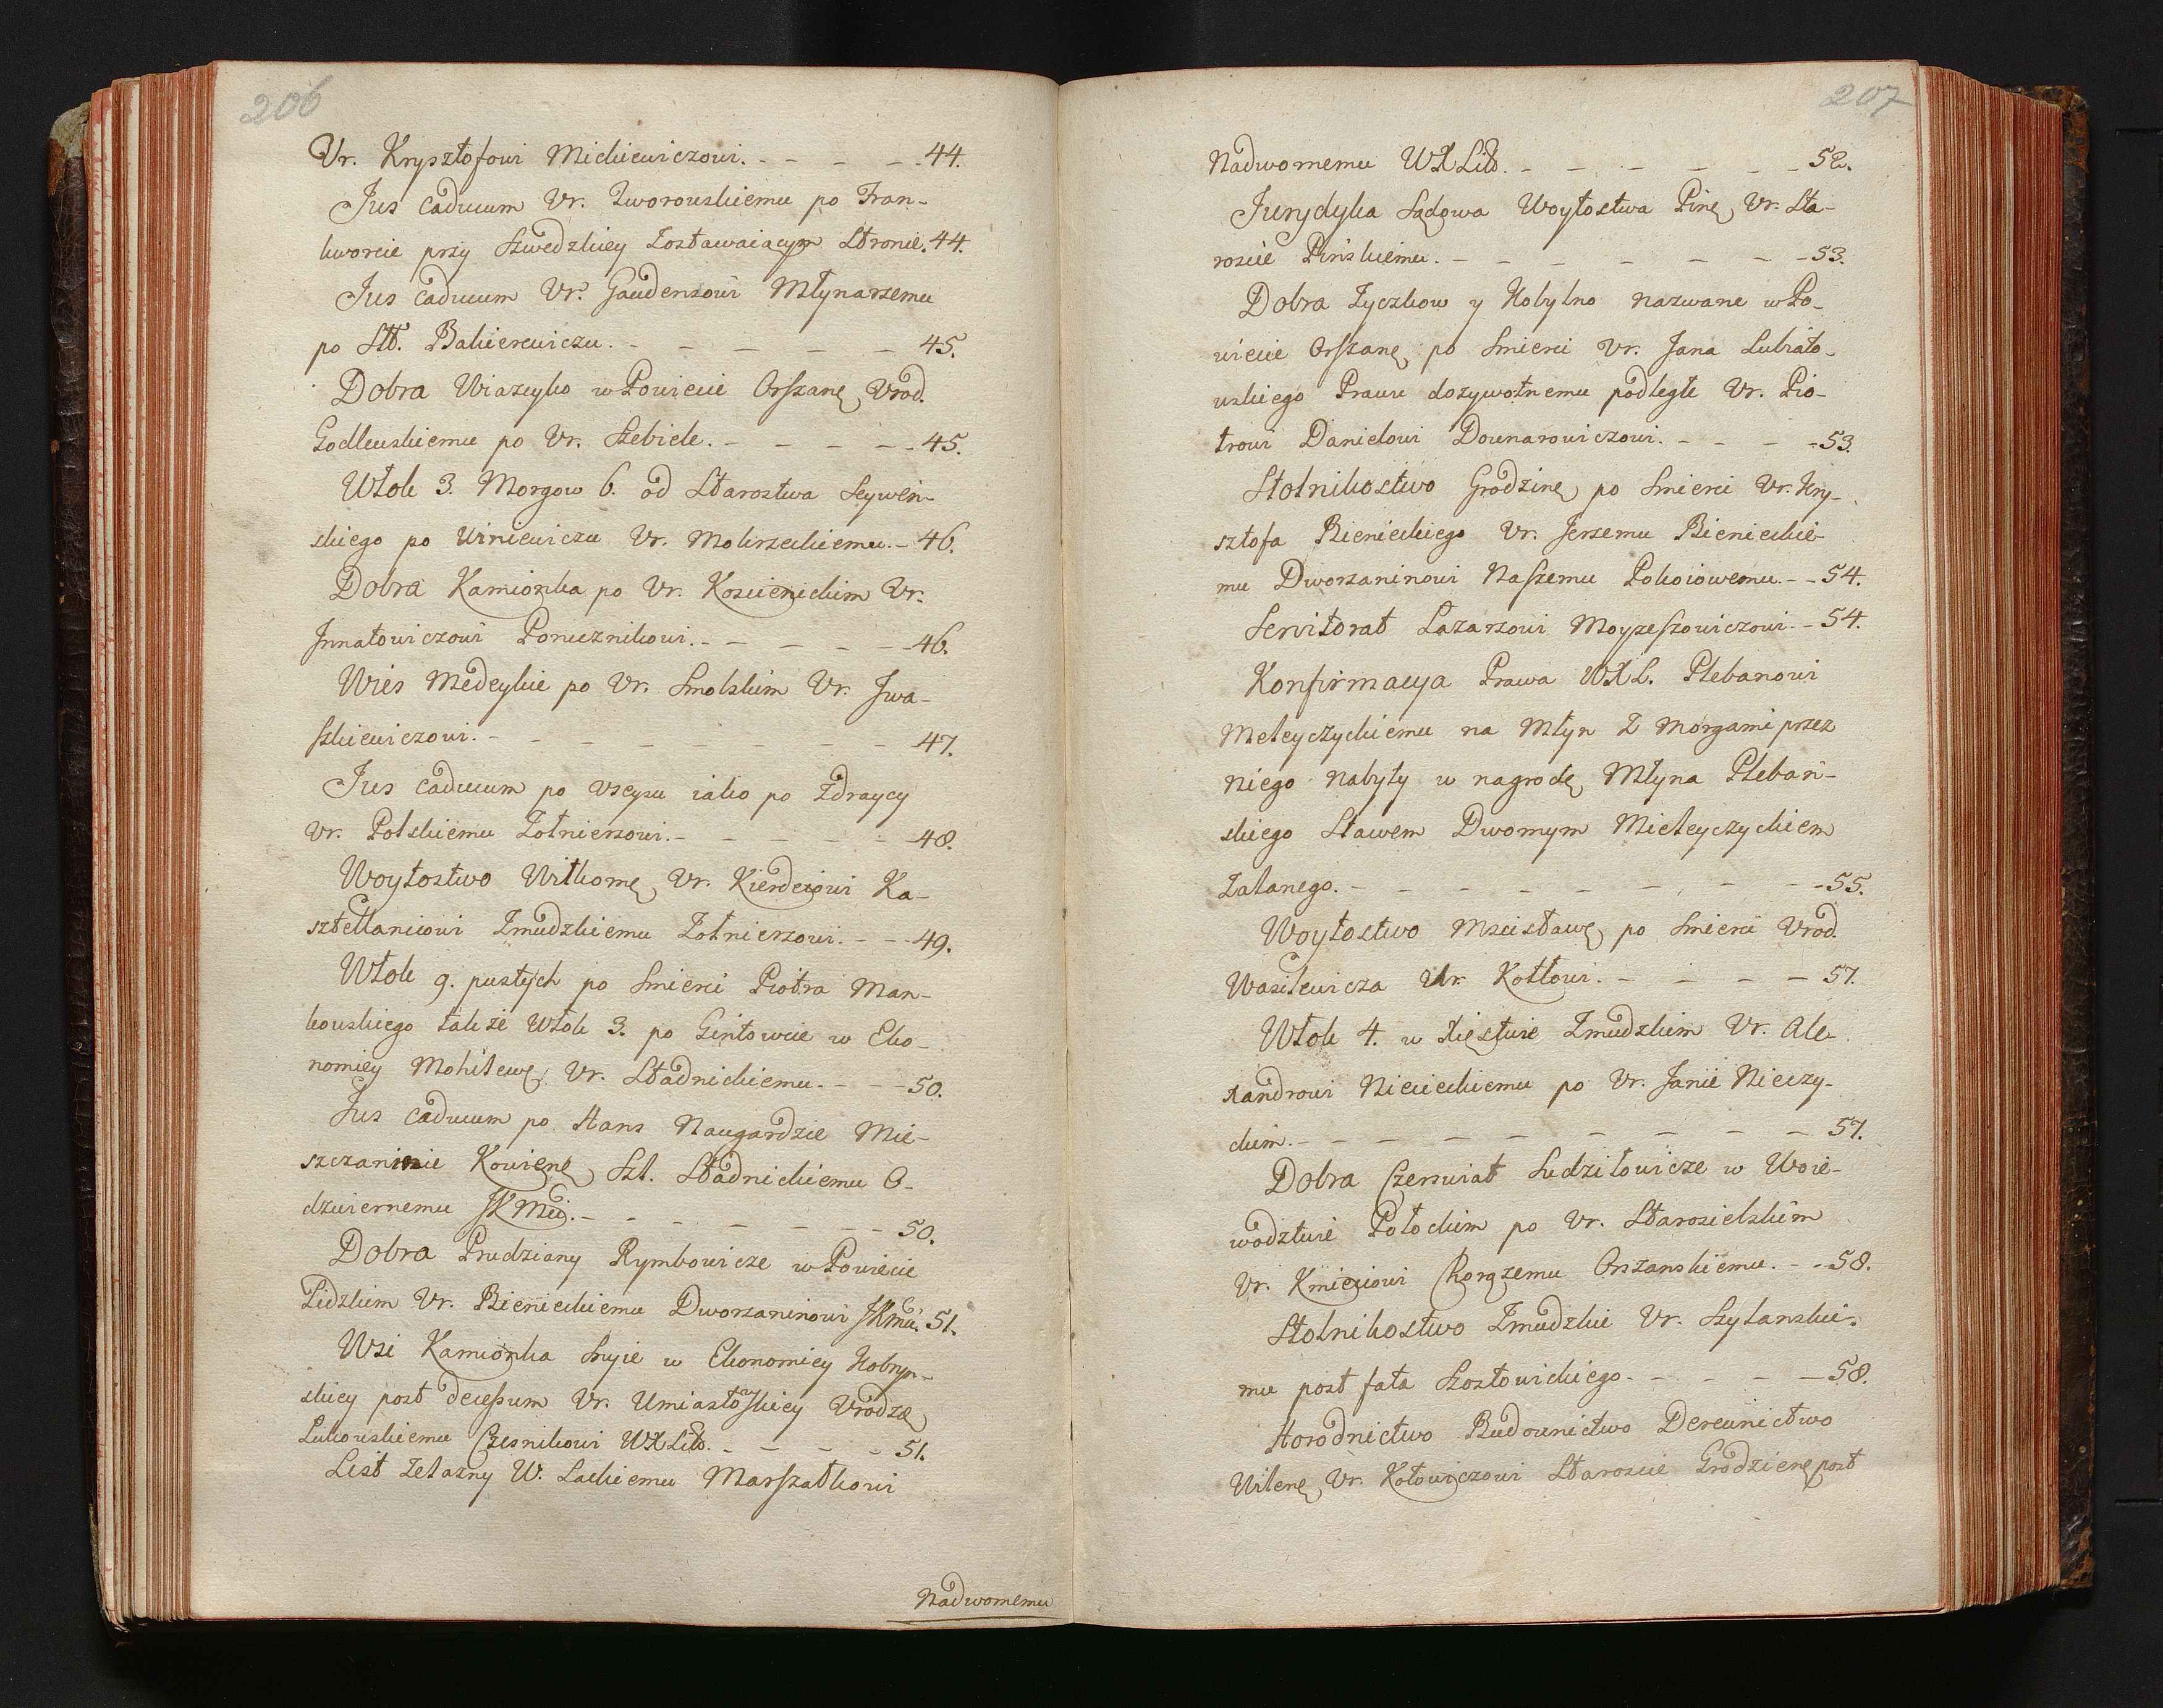 206
Ur. Krysztofowi Mickiewiczowi. - - - - 44.
Jus caducum Ur. Zworowskiemu po Fran-
kworcie przy Szwedzkiey Zostawaiącym Stronie. 44.
Jus caducum Ur. Gaudenzowi Młynarzemu
po Stt. Bakierewiczu. - - - - - 45.
Dobra Wiazeyko w Powiecie Orszanę Urod.
Godlewskiemu po Ur. Szebiele. - - - - 45.
Włok 3. Morgow 6. od Starostwa Seyweń-
skiego po Winiewiczu Ur. Mokrzeckiemu. - 46.
Dobra Kamionka po Ur. Koscienickim Ur.
Jnnatowiczowi Porucznikowi. - - - - - 46.
Wies Medeykie po Ur. Smolskim Ur. Jwa-
szkiewiczowi. - - - - - - - - 47.
Jus caducum po Uscysu iako po Zdraycy
Ur. Polskiemu Zołnierzowi. - - - - - 48.
Woytostwo Wilkomę Ur. Kierdeiowi Ka-
sztellanicowi Zmudzkiemu Zołnierzowi. - - 49.
Włok 9. pustych po Smierci Piotra Man-
kowskiego także Włok 3. po Gintowcie w Eko-
nomiey Mohilewę Ur. Stadnickiemu. - - - 50.
Jus caducum po Hans Naugardzie Mie-
szczaninie Kowienę Szl. Stadnickiemu O-
dzwiernemu JKMci. - - - - - - - 50.
Dobra Prudziany Rymbowicze w Powiecie
Lidzkim Ur. Bienieckiemu Dworzaninowi JKmci. 51.
Wsi Kamionka Snyie w Ekonomiey Kobryn-
skiey post decessum Ur. Umiastowskiey Urodzę
Lukowskiemu Czesnikowi WXLitt. - - - - 51.
List Zelazny W. Lackiemu Marszałkowi
Nadwornemu
207
Nadwornemu WXLitt. - - - - - - 52.
Jurydyka Sądowa Woytostwa Pinę Ur. Sta-
roscie Pinskiemu. - - - - - - - 53.
Dobra Zyczkow y Kobylno nazwane w Po-
wiecie Orszanę po Smierci Ur. Jana Lubiato-
wskiego Prawu dozywotnemu podległe Ur. Pio-
trowi Danielowi Downarowiczowi. - - - - 53.
Stolnikostwo Grodzinę po Smierci Ur. Kry-
sztofa Bienieckiego Ur. Jerzemu Bienieckie-
mu Dworzaninowi Naszemu Pokoiowemu. - - 54.
Servitorat Lazarzowi Moyzeszowiczowi. - 54.
Konfirmacya Prawa WXL. Plebanowi
Meleyczyckiemu na Młyn z morgami przez
niego nabyty w nagrodę Młyna Plebań-
skiego Stawem Dwornym Mieleyczyckiem
Zalanego. - - - - - - - - - 55.
Woytostwo Mscisławę po Smierci Urod.
Wasilewicza Ur. Kotłowi. - - - - 57.
Włok 4. w Xięstwie Zmudzkim Ur. Ale-
xandrowi Niecieckiemu po Ur. Janie Nieczy-
ckim. - - - - - - - - - 57.
Dobra Czerwiat Sudziłowicze w Woie-
wodztwie Połockim po Ur. Starosielskim
Ur. Kmiciowi Chorążemu Orszanskiemu. - - 58.
Stolnikostwo Zmudzkie Ur. Szylanskie-
mu post fata Szostowickiego. - - - - 58.
Horodnictwo Budownictwo Derewnictwo
Wilenę Ur. Kotowiczowi Staroscie Grodzienę post